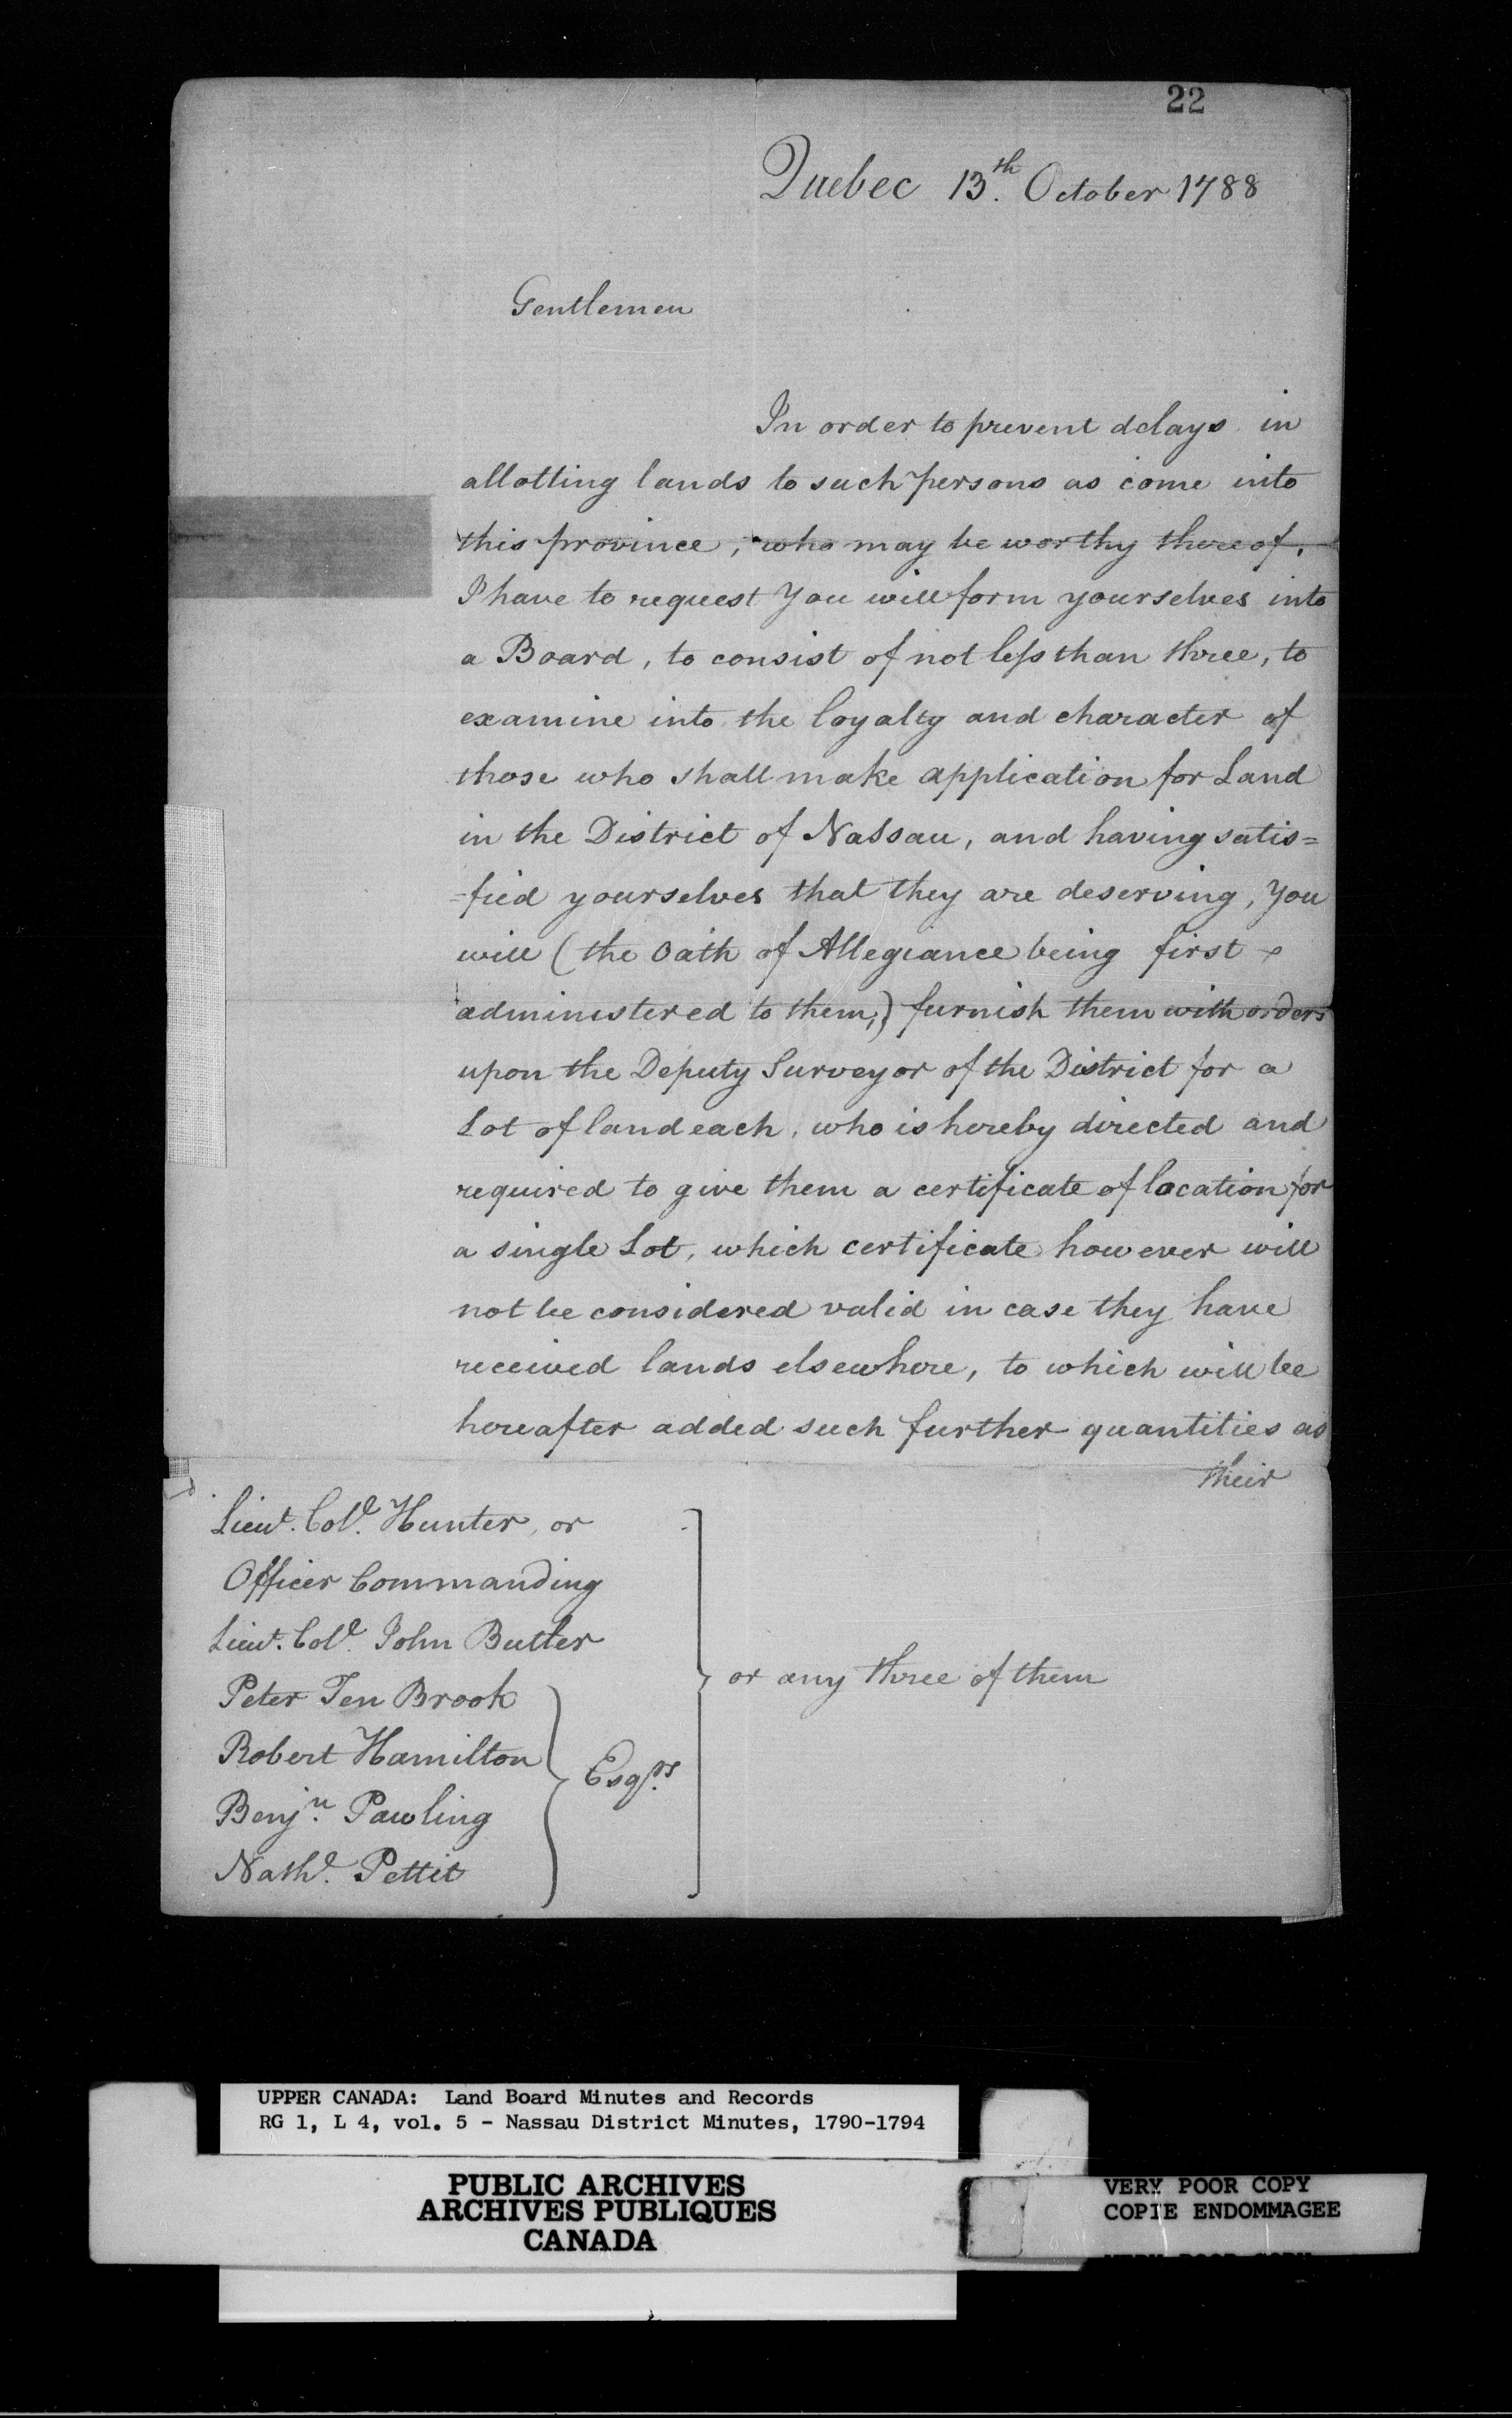 22
Quebec 13.th October 1788
Gentlemen
In order to prevent delays in
allotting lands to such persons as come into
this province, who may be worthy thereof,
I have to request You will form yourselves into
a Board, to consist of not less than three, to
examine into the loyalty and character of
those who shall make application for Land
in the District of Nassau, and having satis=
=fied yourselves that they are deserving, You
will (the Oath of Allegiance being first
administered to them,) furnish them with orders
upon the Deputy Surveyor of the District for a
Lot of land each, who is hereby directed and
required to give them a certificate of location for
a single Lot, which certificate however will
not be considered valid in case they have
received lands elsewhere, to which will be
hereafter added such further quantities as
their
Lieut. Col. Hunter, or
Officer Commanding
Lieut. Col. John Butler
Peter Ten Brook
Robert Hamilton
Benj.n Pawling
Nath.l Pettit
Esq.rs
or any three of them
UPPER CANADA: Land Board Minutes and Records
RG 1, L 4, vol. 5 - Nassau District Minutes, 1790-1794
PUBLIC ARCHIVES
ARCHIVES PUBLIQUES
CANADA
VERY POOR COPY
COPIE ENDOMMAGEE
VERY POOR COPY